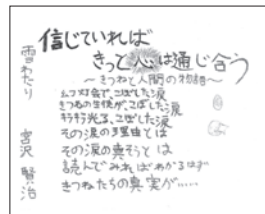 雪わたり
宮沢 賢治
信じていれば
きっと心は通じ合う
～きつねと人間の物語～
幻灯会で、こぼした涙
きつねの生徒が、こぼした涙
キラキラ光る、こぼした涙
その涙の理由とは
その涙の真そうとは
読んでみればわかるはず
きつねたちの真実が……